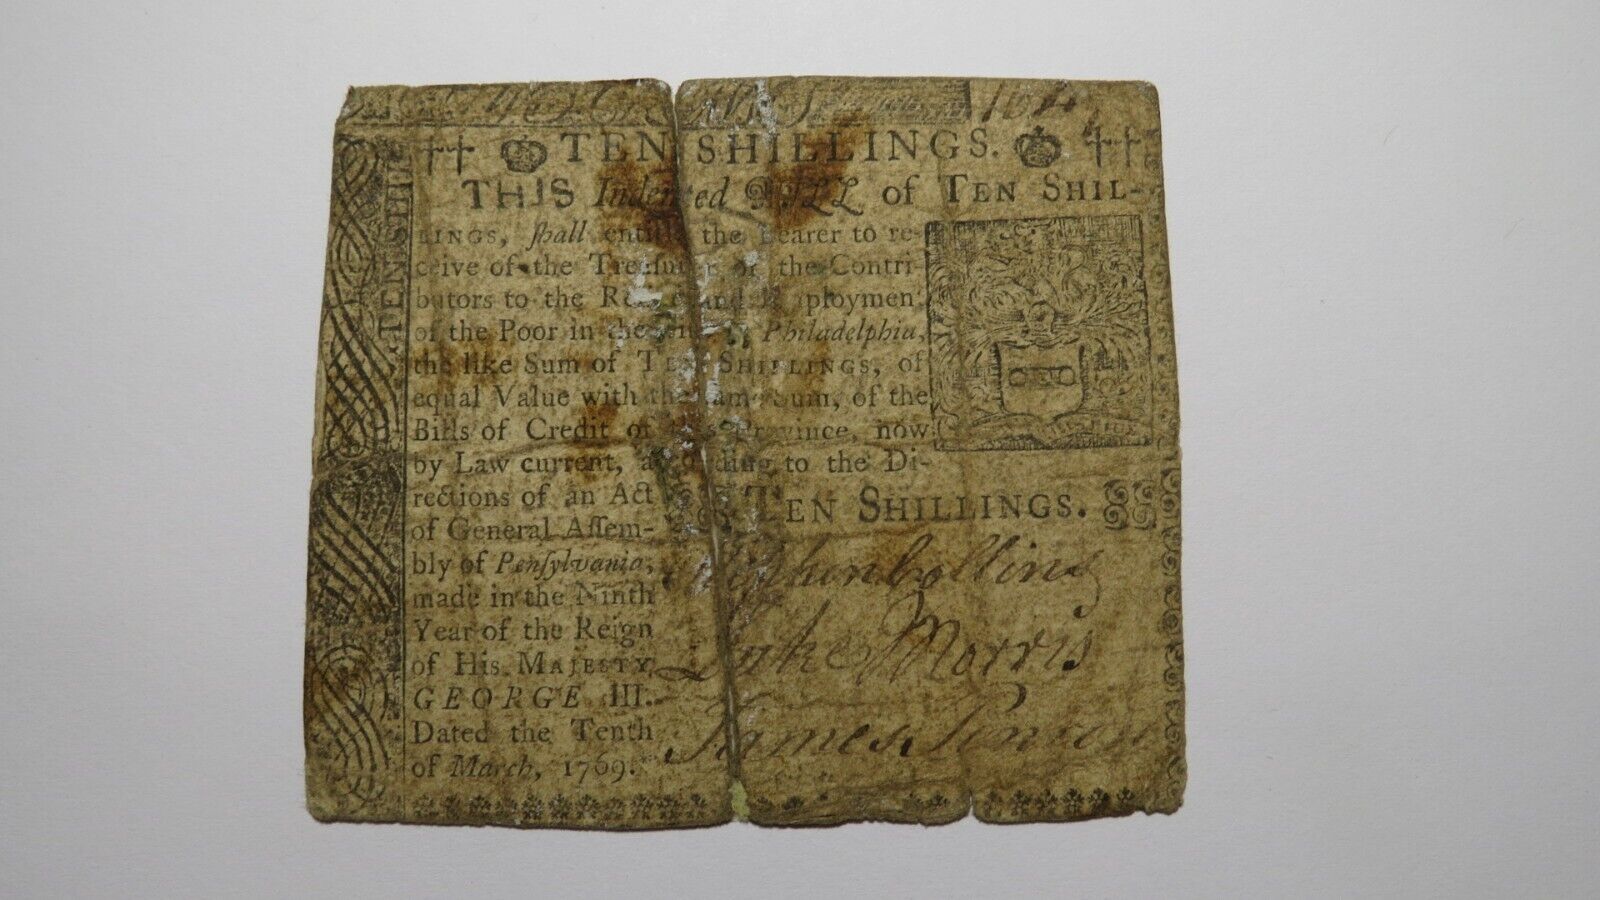 TEN SHILLINGS.
THIS Indented BILL of TEN SHIL-
LINGS, ſhall entitle the Bearer to re-
ceive of the Treaſurer of the Contri-
butors to the Relief and Employmen
of the Poor in the City Philadelphia,
the like Sum of TEN SHILLINGS, of
equal Value with the ſame Sum, of the
Bills of Credit of this Province, now
by Law current, according to the Di-
rections of an Act
of General Aſſem-
bly of Penſylvania,
made in the Ninth
Year of the Reign
of His MAJESTY
GEORGE III.
Dated the Tenth
of March, 1769.
TEN SHILLINGS.
Stephen Collins
Luke Morris
James
TEN SHILL